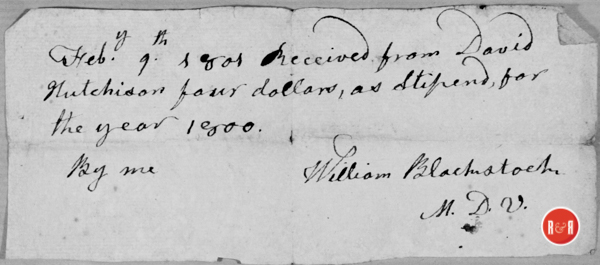 Feb.y 9.th 1801 Received from David
Hutchison four dollars, as Stipend, for
the year 1800.
By me William Blackstock
M. D. V.
R&R